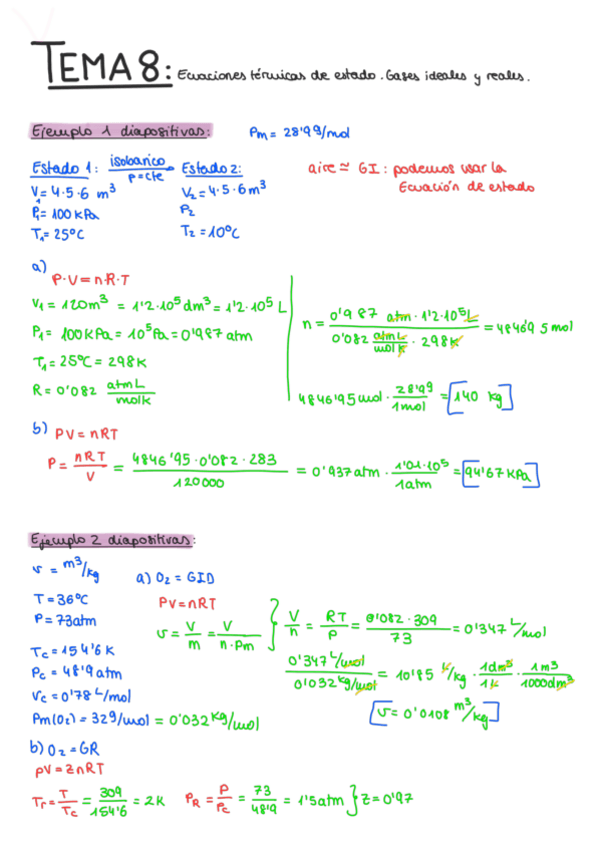 TEMA 8: Ecuaciones térmicas de estado. Gases ideales y reales.
Ejemplo 1 diapositivas: Pm = 28'9 g/mol
Estado 1: isobarico p=cte Estado 2:
V₁= 4·5·6 m³ V₂=4·5·6 m³
P₁= 100 kPa P₂
T₁= 25°C T₂ = 10°C
aire ≃ GI: podemos usar la
Ecuación de estado
a)
P·V = n·R·T
V₁ = 120m³ = 1'2·10⁵ dm³ = 1'2·10⁵ L
P₁ = 100KPa = 10⁵Pa = 0'987 atm
T₁ = 25°C = 298K
R = 0'082 atm L / mol K
n = 0'987 atm · 1'2·10⁵ L / 0'082 atm L / mol K · 298K = 4846'95 mol
4846'95 mol · 28'99 / 1 mol = [140 kg]
b) PV = nRT
P = nRT / V = 4846'95·0'082·283 / 120000 = 0'937 atm · 1'01·10⁵ / 1 atm = [94'67 KPa]
Ejemplo 2 diapositivas:
v = m³/kg a) O₂ = GID
T = 36°C PV = nRT
P = 73 atm v = V/m = V / n·Pm } V/n = RT/P = 0'082·309 / 73 = 0'347 L/mol
Tc = 154'6 K
Pc = 48'9 atm 0'347 L/mol / 0'032 kg/mol = 10'85 L/kg · 1dm³ / 1L · 1m³ / 1000dm³
Vc = 0'78 L/mol
Pm(O₂) = 32g/mol = 0'032 kg/mol [v = 0'0108 m³/kg]
b) O₂ = GR
pV = znRT
Tr = T/Tc = 309 / 154'6 = 2K PR = P/Pc = 73 / 48'9 = 1'5 atm } z = 0'97